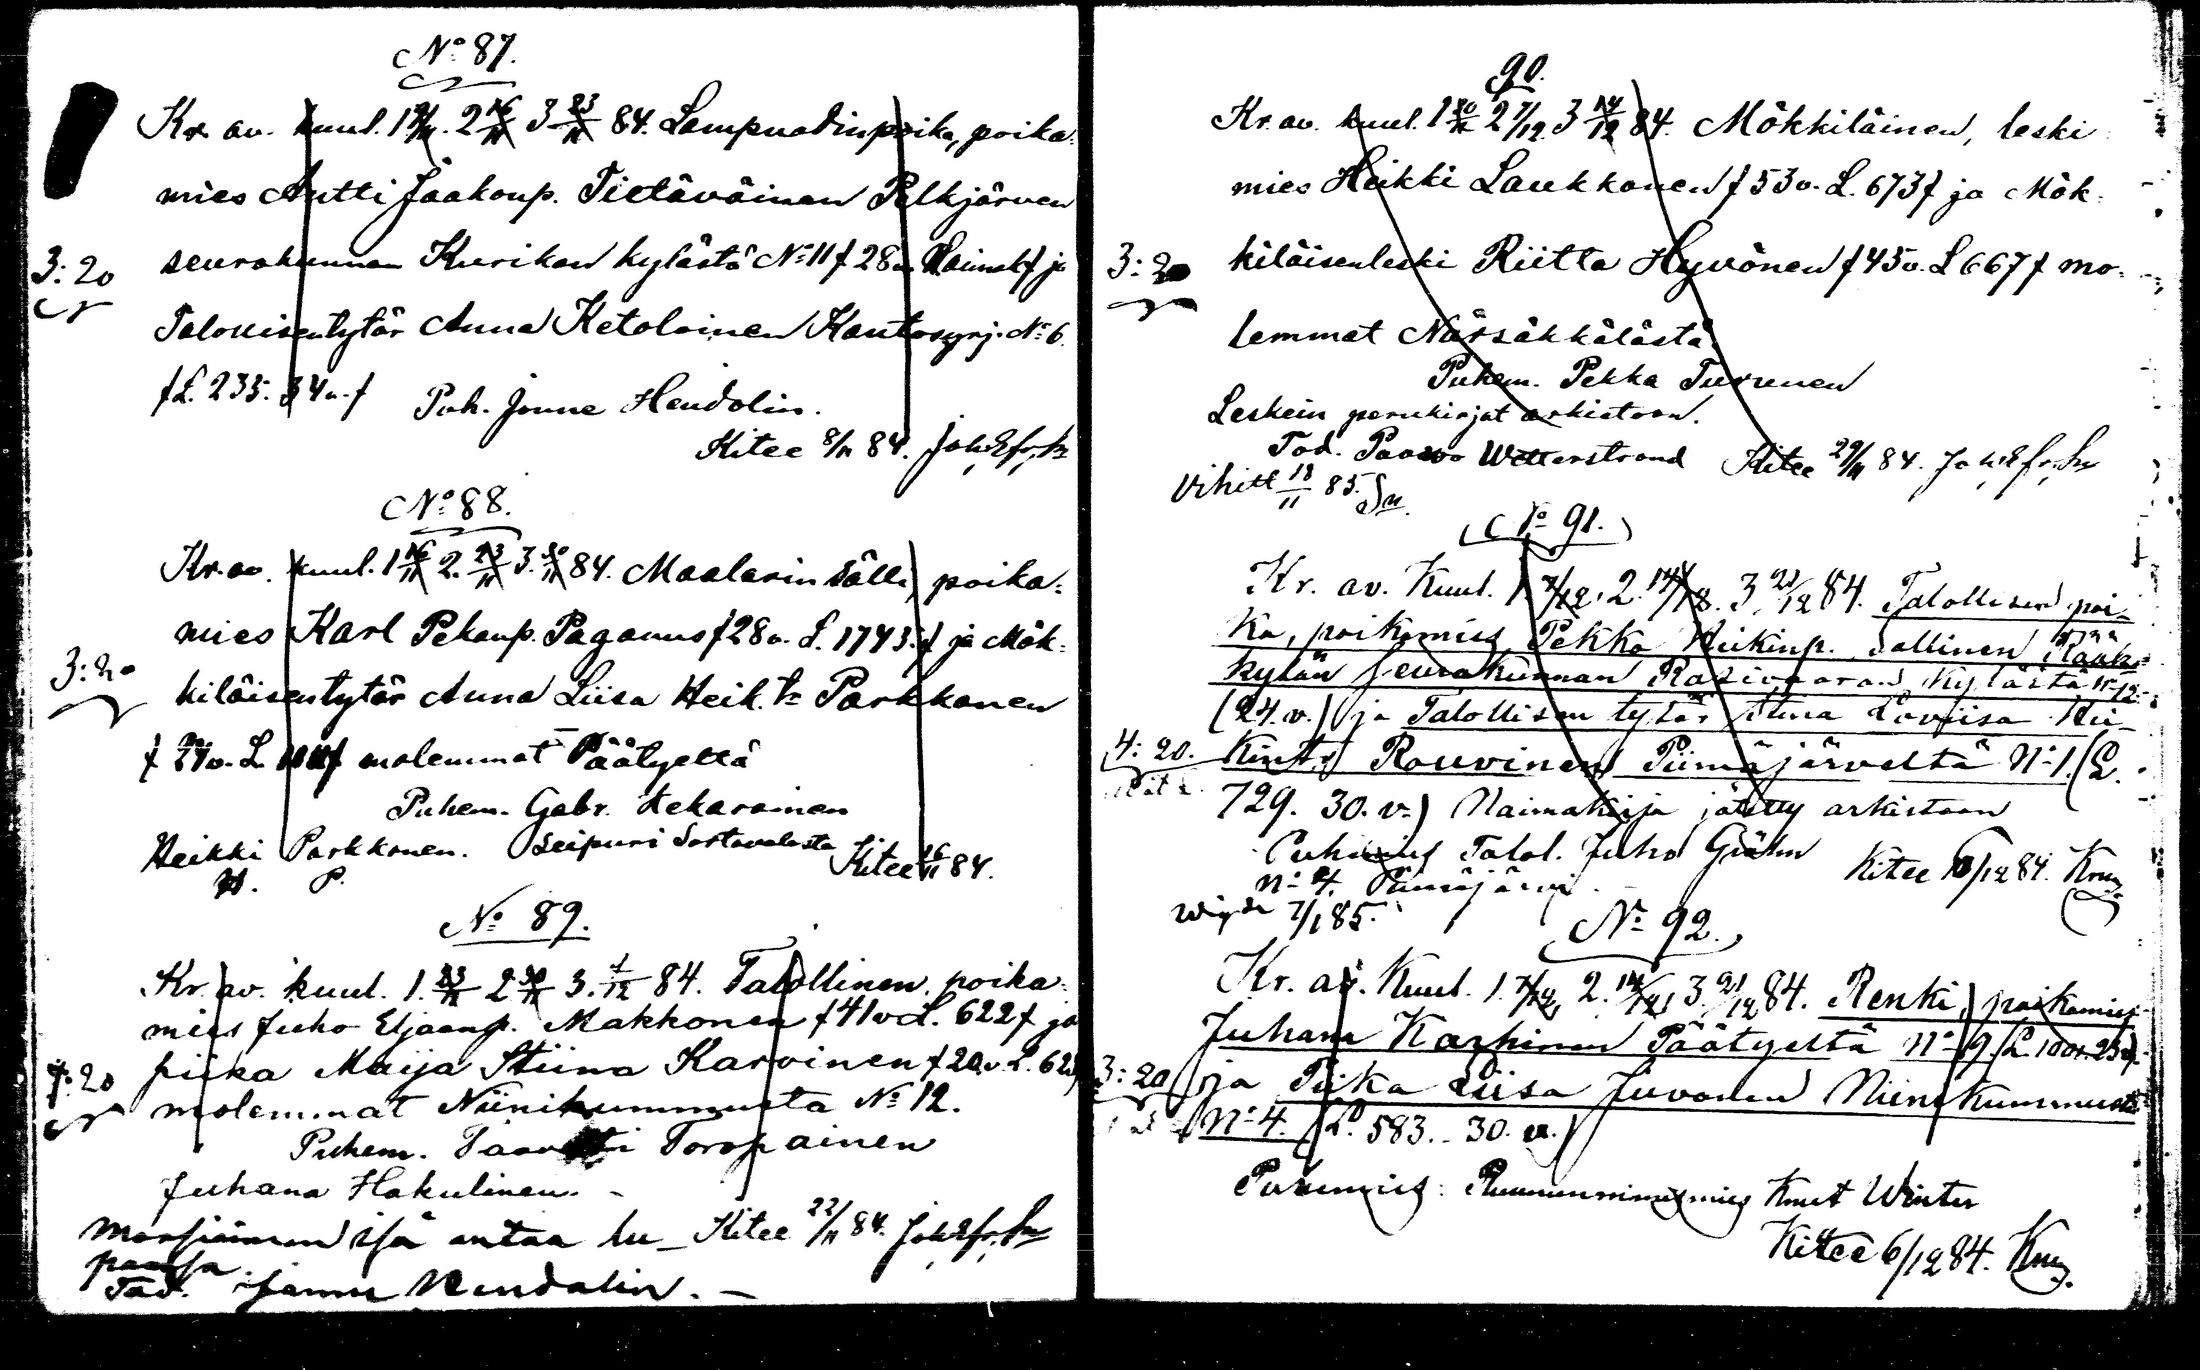 No 87.
Kr. av. kuul. 1 9/11. 2 16/11 3 23/11 84. Lampuodinpoika, poika-
mies Antti Jaakonp. Tietäväinen Pälkjärven
3:20 seurakunnan Kurikan kylästä No 11 f 28 v. f ja
Talollisentytär Anna Ketolainen Kantosyrj. No 6.
f L. 235. 34 v. f Puh. Jonne Hendolin.
Kitee 8/11 84. Joh. Efr.
No 88.
Kr. av. kuul. 1 16/11 2. 23/11 3. 30/11 84. Maalarin sälli, poika-
mies Karl Pekanp. Paganus f 28 v. L. 1743. f ja Mök-
3:20 kiläisentytär Anna Liisa Heik. tr Parkkonen
molemmat Päätyeltä
Puhem. Gabr. Kekarainen
Heikki Parkkonen. Leipuri Sortavalasta Kitee 16/11 84.
H. P.
No 89.
Kr. av. kuul. 1. 23/11 2 30/11 3. 7/12 84. Talollinen, poika-
mies Juho Eljaanp. Makkonen f 41 v L. 622 f ja
7:20 piika Maija Stiina Karvinen f 20 v. L. 62
molemmat Niinikummusta No 12.
Puhem. Taavetti Toropainen
Juhana Hakulinen. -
Morsiamen isä antaa lu- Kitee 22/11 84. Joh. Efr.
paansa
Tod. Jannu Hendolin. -
90.
Kr. av. kuul. 1 30/11 2 7/12. 3 14/12 84. Mökkiläinen, leski
mies Heikki Laukkonen f 53 v. L. 673 f ja Mök-
3:20 kiläisenleski Riitta Hyvönen f 45 v. L 667 f mo-
lemmat Närsäkkälästä.
Puhem. Pekka Turunen
Leskein perukirjat arkistoon.
Tod. Paavo Wetterstrand Kitee 29/11 84. Joh. Efr.
Vihitt 18/11 85.
No 91.
Kr. av. Kuul. 1. 7/12. 2. 14/12. 3. 21/12 84. Talollisen poi-
ka, poikamies Pekka Heikinp. Sallinen Rääk-
kylän seurakunnan Rasivaaran kylästä No 12.
(24. v.) ja Talollisen tytär Stina Loviisa Hei-
4:20. kintr. Rouvinen Piimäjärveltä No 1. (L.
729. 30. v.) Naimakirja jätetty arkistoon
Puhemies Talol. Juho Gråhn Kitee /12 84.
No 4. Piimäjärvi
7/1 85.
No 92.
Kr. av. Kuul. 1. 7/12, 2. 14/12, 3. 21/12 84. Renki, poikamies
Juhana Karhinen Päätyeltä No 9. (L. 1001. 23 v.)
3:20 ja Piika Liisa Juvonen Niinikummusta
No 4. (L. 583. - 30. v.)
Puhemies: Ruununnimismies Knut Winter
Kitee 6/12 84.